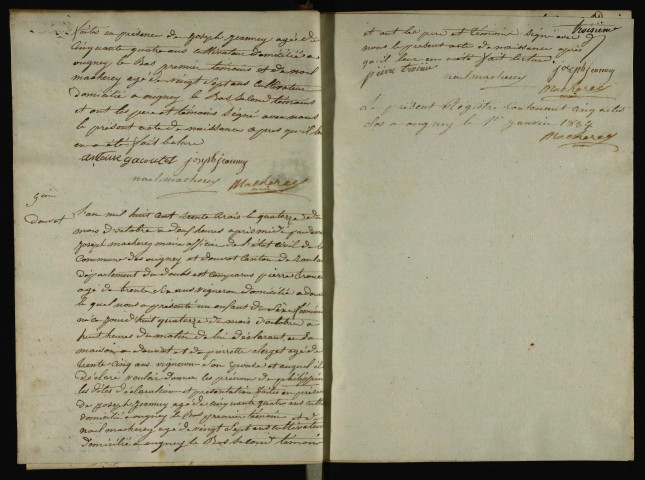 faites en présence de Joseph Jeanney agé de
cinquante quatre ans cultivateur domicilié a
ougney le Bas premier témoins et de noel
macherey agé de vingt sept ans cultivateur
domicilié a ougney le Bas second témoins
et ont les pere et témoins signé avec nous
le présent acte de naissance apres qu'il leur
en a été fait lecture
joseph jeanney
noel macherey Macherey
5em
douvot
L'an mil huit cent trente trois le quatorze du
mois d'octobre a deux heures apres midi par devant
joseph macherey maire officier de l'état civil de la
commune des ougney et douvot canton de
département du doubs est comparus pierre
agé de trente six ans vigneron domicilié a douvot
le quel nous a présenté un enfant du sexe féminin
né ce jourd'huit quatorze du mois d'octobre a
huit heures du matin de lui déclarant en sa
maison a douvot et de pierrette clerget agé de
trente cinq ans vigneron son épouse et auquel il a
déclaré vouloir donner les prénoms de
les dites déclaration et présentation faites en présence
de Joseph Jeanney agé de cinquante quatre ans
domicilié a ougney le Bas premier témoin et de
noel macherey agé de vingt sept ans cultivateur
domicilié a ougney le Bas second témoins
et ont les pere et témoins signé avec
nous le présent acte de naissance apres
qu'il leur en a été fait lecture
pierre
noel macherey joseph jeanney
Macherey
Le présent Registre contenant cinq actes
clos a ougney le 1er janvier 1834
Macherey